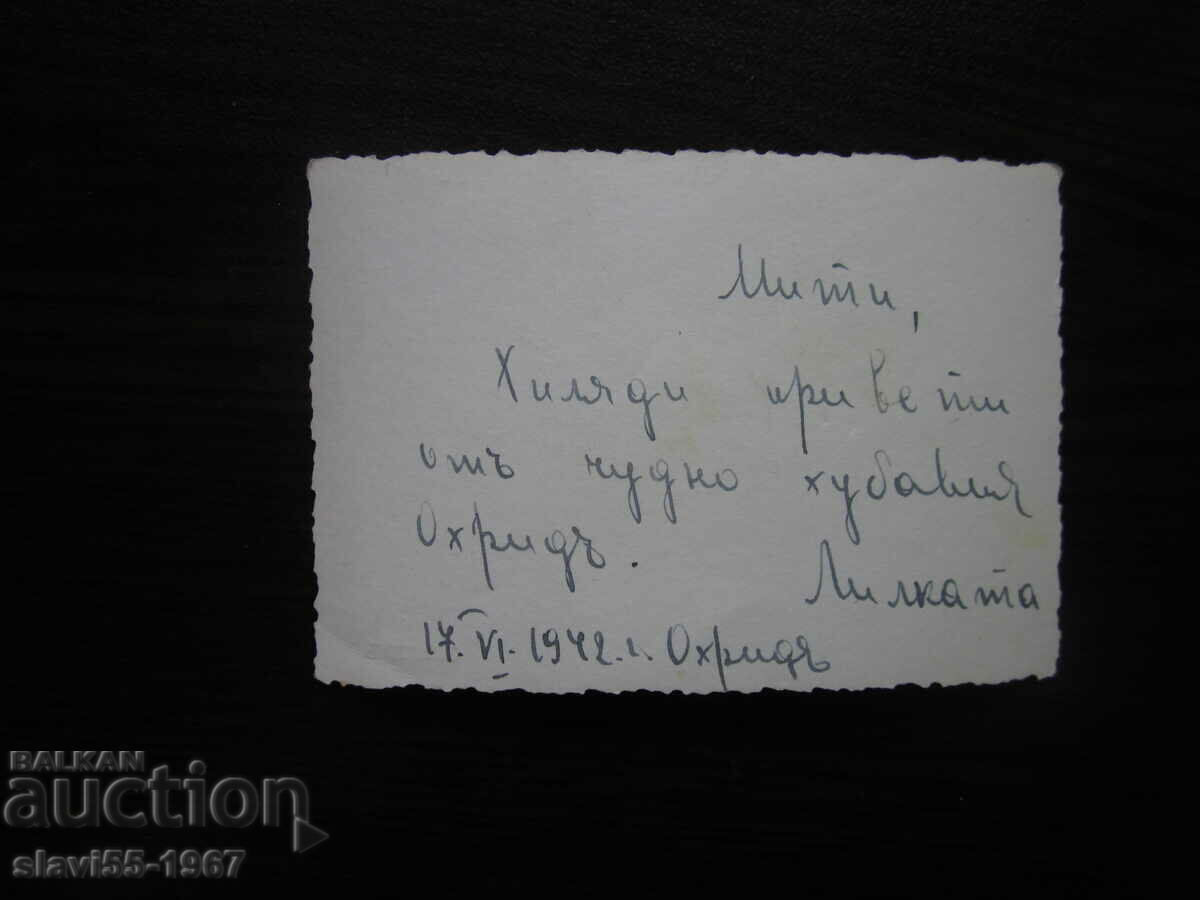 Мити,
Хиляди привети
отъ чудно хубавия
Охридъ.
Лилката
17. VI. 1942. г. Охридъ
BALKAN
auction
slavi55-1967